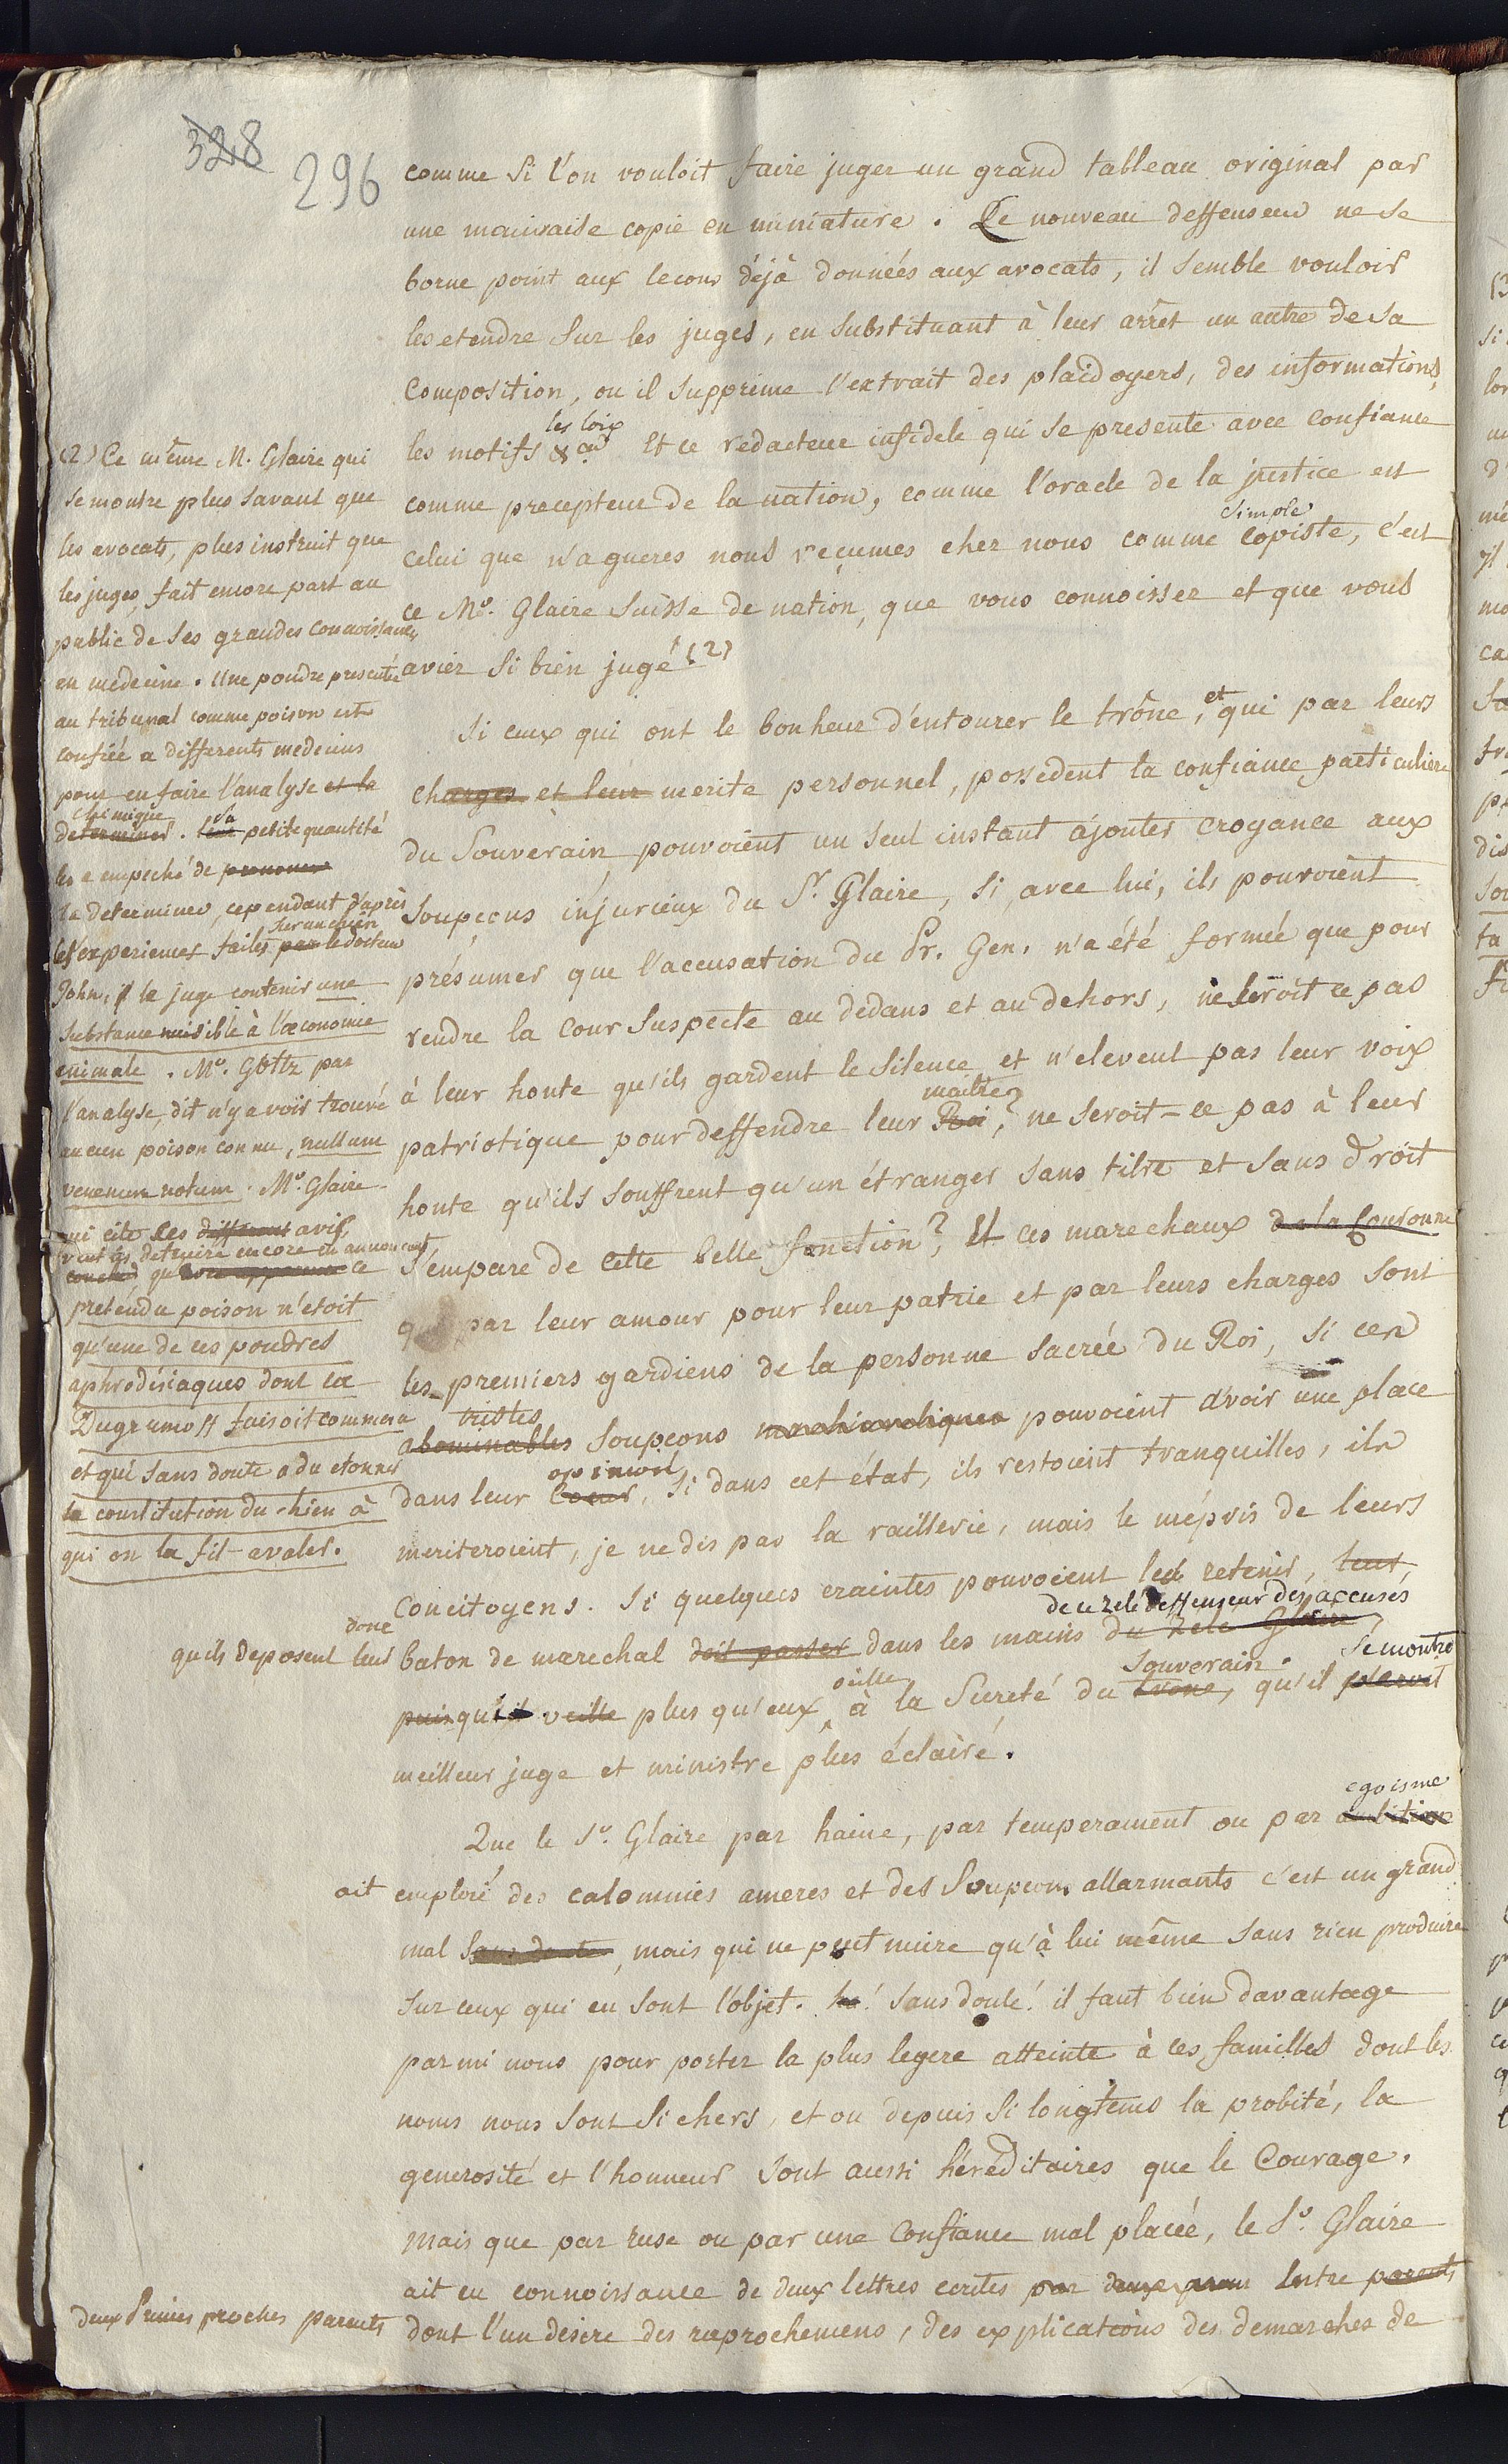 328
296
comme si l'on vouloit faire juger un grand tableau original par
une mauvaise copie en miniature. Le nouveau deffenseur ne se
borne point aux lecons déjà données aux avocats, il semble vouloir
les etendre sur les juges, en substituant à leur arrêt un autre de sa
composition, ou il supprime l'extrait des plaidoyers, des informations,
les loix
les motifs &ca Et ce redacteur infidele qui se presente avec confiance
comme precepteur de la nation, comme l'oracle de la justice est
simple
celui que n'agueres nous reçumes chez nous comme copiste, c'est
ce Mr. Glaire Suisse de nation, que vous connoissez et que vous
aviez si bien jugé. (2)
Si ceux qui ont le bonheur d'entourer le trône, et qui par leurs
charges et leur merite personnel, possedent la confiance particuliere
du Souverain pouvoient un seul instant ajouter croyance aux
soupçons injurieux du Sr. Glaire, si, avec lui, ils pouvoient
présumer que l'accusation du Pr. Gen. n'a été formée que pour
rendre la cour suspecte au dedans et au dehors, ne seroit ce pas
à leur honte qu'ils gardent le silence et n'elevent pas leur voix
maitre
patriotique pour deffendre leur Roi, ne seroit-ce pas à leur
honte qu'ils souffrent qu'un étranger sans titre et sans droit
s'empare de cette belle fonction? Et ces marechaux de la Couronne
qui par leur amour pour leur patrie et par leurs charges sont
les premiers gardiens de la personne sacrée du Roi, si ces
tristes
abominables soupçons pouvoient avoir une place
opinion
dans leur coeur, si dans cet état, ils restoient tranquilles, ils
meriteroient, je ne dis pas la raillerie, mais le mépris de leurs
concitoyens. Si quelques craintes pouvoient les retenir, leur
donc
de ce zelé deffenseur des accusés
qu'ils deposent leur baton de marechal doit passer dans les mains du zelé Glaire
veille
Souverain.
se montre
puisqu'il veille plus qu'eux à la sureté du trone, qu'il paroit
meilleur juge et ministre plus éclairé.
egoisme
Que le Sr. Glaire par haine, par temperament ou par ambition
ait emploié des calomnies ameres et des soupcons allarmants c'est un grand
mal sans doute, mais qui ne peut nuire qu'à lui même sans rien produire
sur ceux qui en sont l'objet. ha! sans doute! il faut bien davantage
parmi nous pour porter la plus legere atteinte à ces familles dont les
noms nous sont si chers, et ou depuis si longtems la probité, la
generosité et l'honneur sont aussi héréditaires que le courage.
Mais que par ruse ou par une confiance mal placée, le Sr. Glaire
ait eu connoissance de deux lettres ecrites par deux entre parents
deux Princes proches parents
dont l'un desire des raprochemens, des explications des demarches de
(2) Ce même M. Glaire qui
se montre plus savant que
les avocats, plus instruit que
les juges, fait encore part au
public de ses grandes connoissances
en medecine. Une poudre presentée
au tribunal comme poison est
confiée a differents medecins
pour en faire l'analyse et la
chimique
sa
determiner. leur petite quantité
les a empeché de prononcer
la determiner, cependant d'après
sur un chien
les experiences faites par le docteur
John, il la juge contenir une
substance nuisible à l'oeconomie
animale. Mr. Göttz par
l'analyse, dit n'y avoir trouvé
aucun poison connu, nullum
venenum notum. Mr. Glaire
qui cite ces different avis,
veut les detruire encore en annoncant,
que ce
pretendu poison n'etoit
qu'une de ces poudres
aphrodisiaques dont la
Dugrumoff faisoit commerce
et qui sans doute a du etonner
la constitution du chien à
qui on la fit avaler.